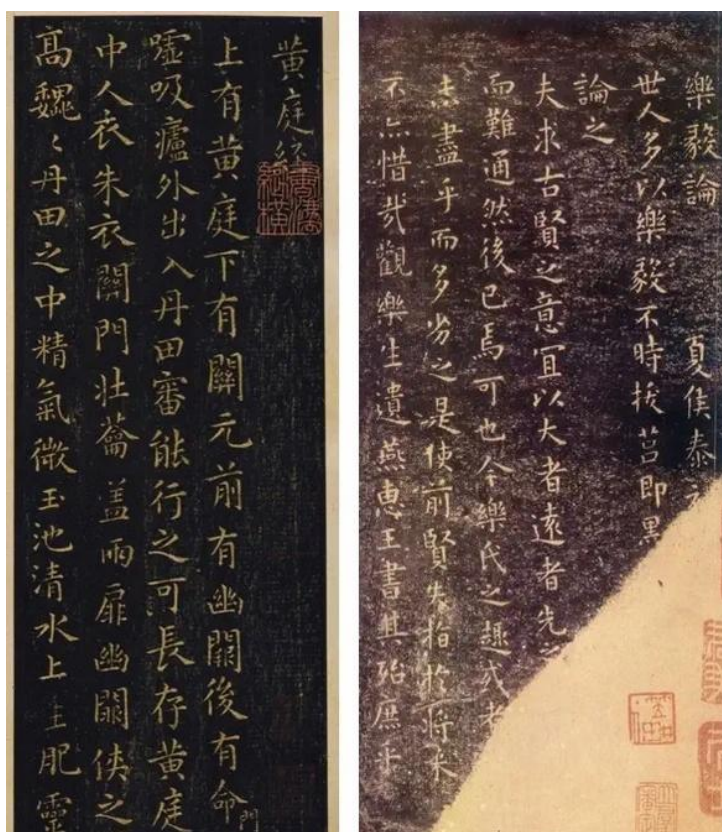 黃庭經
上有黃庭下有關元前有幽闕後有命門
噓吸廬外出入丹田審能行之可長存黃庭
中人衣朱衣關門壯蘥盖兩扉幽闕俠之
高巍〻丹田之中精氣微玉池清水上生肥靈
樂毅論 夏侯泰
世人多以樂毅不時拔莒即墨
論之
夫求古賢之意宜以大者遠者先之
而難通然後已焉可也今樂氏之趣或者
未盡乎而多劣之是使前賢失指於將来
不亦惜哉觀樂生遺燕惠王書其殆庶乎